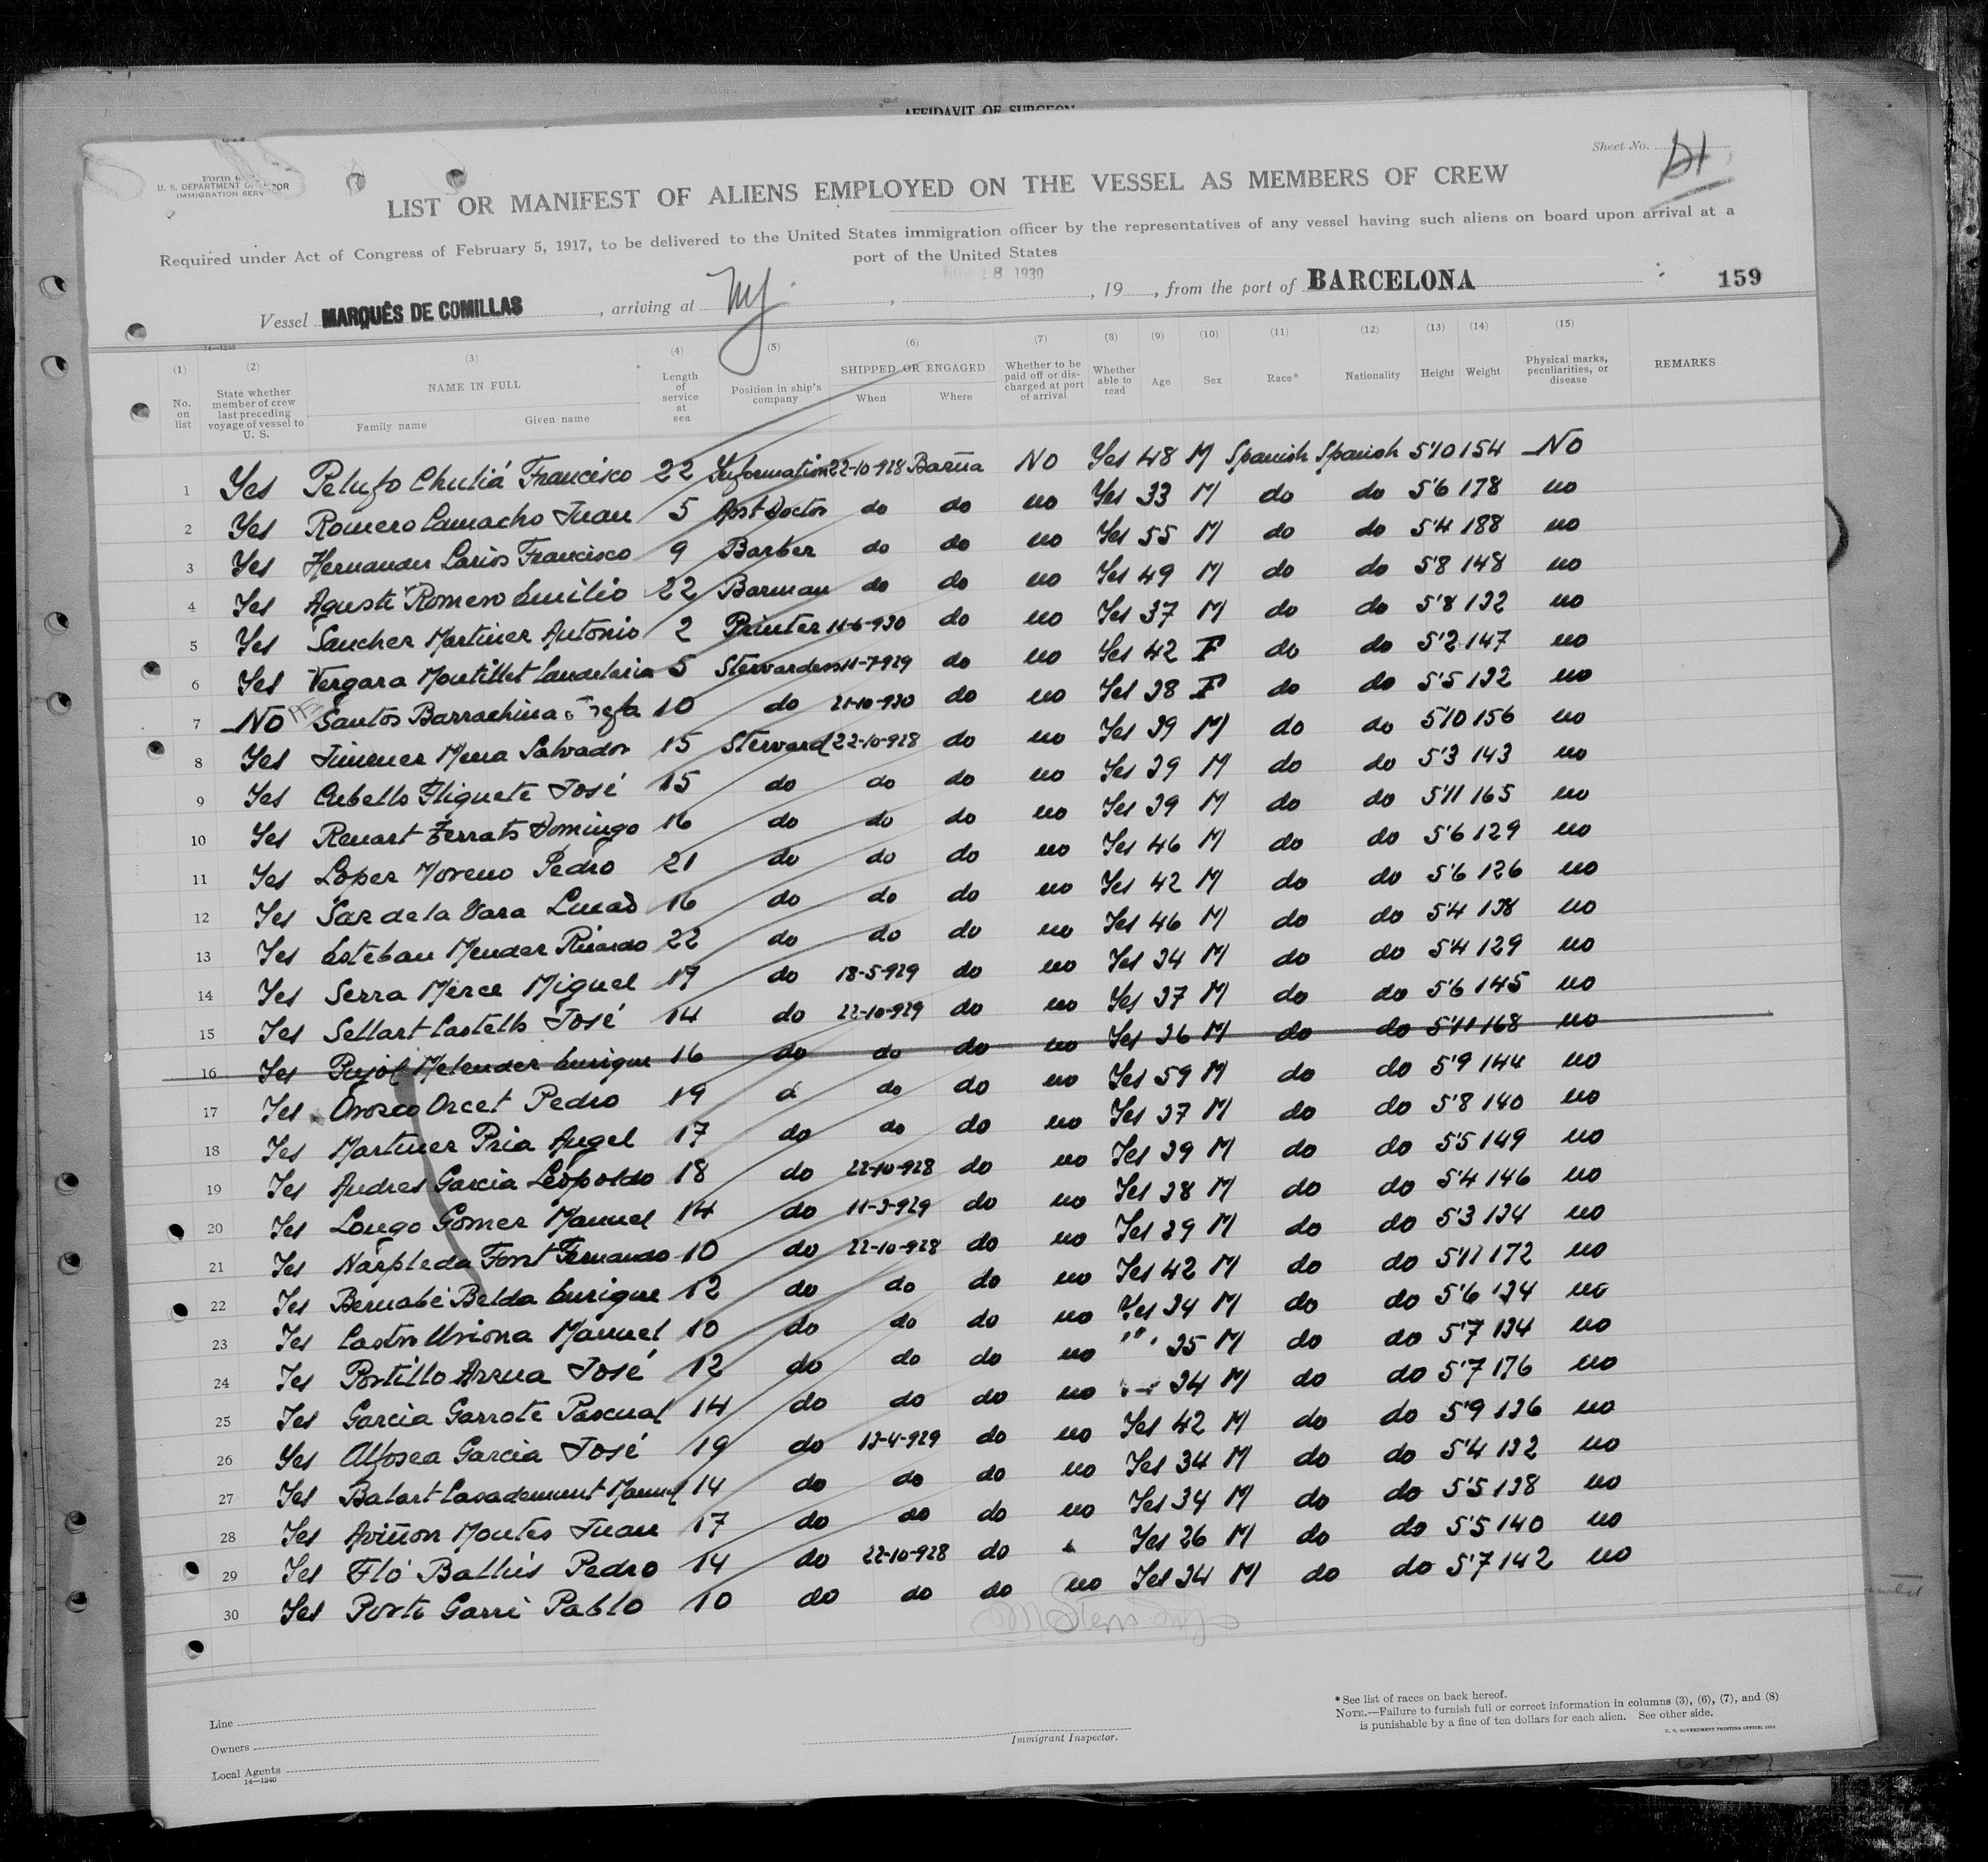 AFFIDAVIT OF SURGEON
Sheet No.
Form
U. S. DEPARTMENT OF LABOR
IMMIGRATION SERV
LIST OR MANIFEST OF ALIENS EMPLOYED ON THE VESSEL AS MEMBERS OF CREW
Required under Act of Congress of February 5, 1917, to be delivered to the United States immigration officer by the representatives of any vessel having such aliens on board upon arrival at a
port of the United States
Vessel MARQUÉS DE COMILLAS, arriving at Ny. , 8 1930, 19 , from the port of BARCELONA 159
14—1240
(1) (2) (3) (4) (5) (6) (7) (8) (9) (10) (11) (12) (13) (14) (15)
No. on list
State whether member of crew last preceding voyage of vessel to U. S.
NAME IN FULL
Family name Given name
Length of service at sea
Position in ship's company
SHIPPED OR ENGAGED
When Where
Whether to be paid off or discharged at port of arrival
Whether able to read
Age Sex Race* Nationality Height Weight
Physical marks, peculiarities, or disease
REMARKS
1 Yes Pelufo Chuliá Francisco 22 Information 22-10-928 Barna No Yes 48 M Spanish Spanish 5'10 154 No
2 Yes Romero Camacho Juan 5 Asst Doctor do do no Yes 33 M do do 5'6 178 no
3 Yes Hernandez Larios Francisco 9 Barber do do no Yes 55 M do do 5'4 188 no
4 Yes Agusti Romero Emilio 22 Barman do do no Yes 49 M do do 5'8 148 no
5 Yes Sanchez Martinez Antonio 2 Printer 11-6-930 do no Yes 37 M do do 5'8 132 no
6 Yes Vergara Montillet Candelaria 5 Stewardess 11-7-929 do no Yes 42 F do do 5'2 147 no
7 No Santos Barrachina 10 do 21-10-930 do no Yes 38 F do do 5'5 132 no
8 Yes Jimenez Mena Salvador 15 Steward 22-10-928 do no Yes 39 M do do 5'10 156 no
9 Yes Cubells Fliquete José 15 do do do no Yes 39 M do do 5'3 143 no
10 Yes Renart Ferrats Domingo 16 do do do no Yes 39 M do do 5'11 165 no
11 Yes Lopez Moreno Pedro 21 do do do no Yes 46 M do do 5'6 129 no
12 Yes Saz de la Vara Lucas 16 do do do no Yes 42 M do do 5'6 126 no
13 Yes Esteban Mendez Ricardo 22 do do do no Yes 46 M do do 5'4 138 no
14 Yes Serra Merce Miguel 17 do 18-5-929 do no Yes 34 M do do 5'4 129 no
15 Yes Sellart Castells José 14 do 22-10-929 do no Yes 37 M do do 5'6 145 no
16 Yes Pujol Melendez Enrique 16 do do do no Yes 36 M do do 5'11 168 no
17 Yes Orozco Orcet Pedro 19 d do do no Yes 59 M do do 5'9 144 no
18 Yes Martinez Pria Angel 17 do do do no Yes 37 M do do 5'8 140 no
19 Yes Andres Garcia Leopoldo 18 do 22-10-928 do no Yes 39 M do do 5'5 149 no
20 Yes Longo Gomez Manuel 14 do 11-3-929 do no Yes 38 M do do 5'4 146 no
21 Yes Narpleda Font Fernando 10 do 22-10-928 do no Yes 29 M do do 5'3 134 no
22 Yes Bernabé Belda Enrique 12 do do do no Yes 42 M do do 5'11 172 no
23 Yes Castro Uriona Manuel 10 do do do no Yes 34 M do do 5'6 134 no
24 Yes Portillo Arrua José 12 do do do no 35 M do do 5'7 134 no
25 Yes Garcia Garrote Pascual 14 do do do no 34 M do do 5'7 176 no
26 Yes Alfosea Garcia José 19 do 13-4-929 do no Yes 42 M do do 5'9 136 no
27 Yes Batart Casademunt Manuel 14 do do do no Yes 34 M do do 5'4 132 no
28 Yes Aviñon Montes Juan 17 do do do no Yes 34 M do do 5'5 138 no
29 Yes Fló Ballus Pedro 14 do 22-10-928 do Yes 26 M do do 5'5 140 no
30 Yes Porte Garri Pablo 10 do do do no Yes 34 M do do 5'7 142 no
Line
Owners
Local Agents
14—1240
Immigrant Inspector.
* See list of races on back hereof.
NOTE.—Failure to furnish full or correct information in columns (3), (6), (7), and (8)
is punishable by a fine of ten dollars for each alien. See other side.
U. S. GOVERNMENT PRINTING OFFICE: